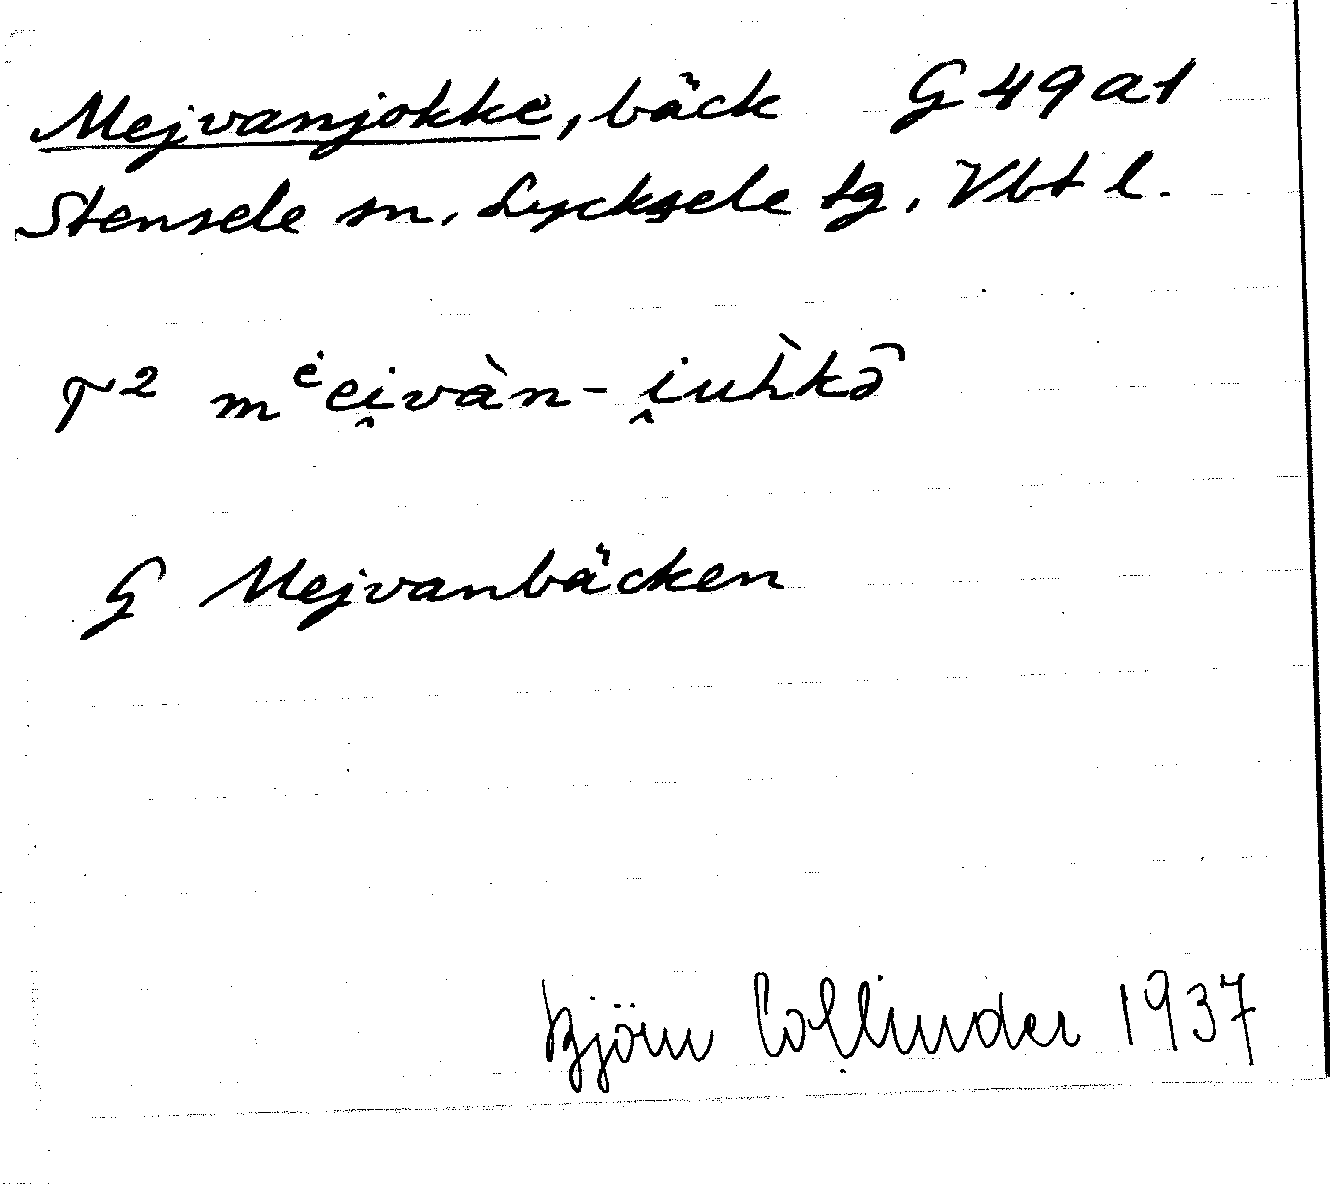 Mejvanjokke, bäck G 49 a 1
Stensele sn, Lycksele tg, Vbt l.
T² mᵉ̇ei̯vàn-i̯uh̀kə̑
G Mejvanbäcken
Björn Collinder 1937